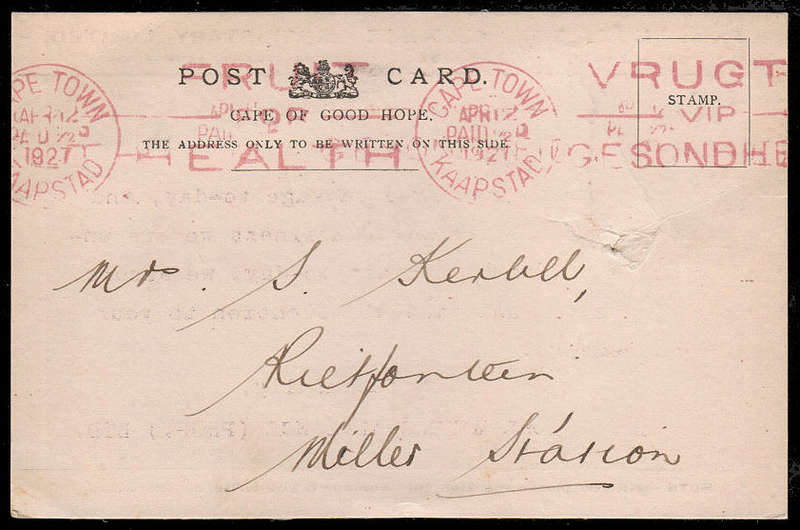 POST CARD.
CAPE OF GOOD HOPE.
THE ADDRESS ONLY TO BE WRITTEN ON THIS SIDE.
STAMP.
CAPE TOWN
APR 12
PAID
1927
KAAPSTAD
FRUIT
HEALTH
CAPE TOWN
APR 12
PAID
1927
KAAPSTAD
VRUGT
VIP
GESONDHE
Mr. S.
Rietfontein
Miller Station